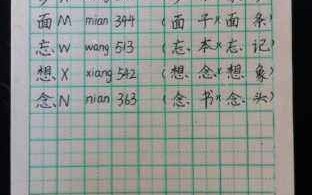 面 M mian 344 (面 子 面 条)
忘 W wang 513 (忘 本 忘 记)
想 X xiang 542 (想 念 想 象)
念 N nian 363 (念 书 念 头)